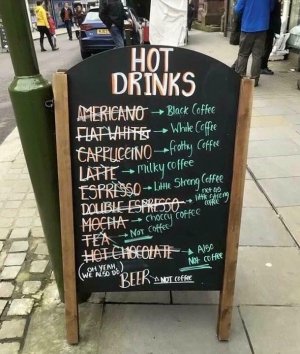 HOT
DRINKS
AMERICANO → Black Coffee
FLAT WHITE → White Coffee
CAPPUCCINO → frothy Coffee
LATTE → milky coffee
ESPRESSO → Little Strong Coffee
DOUBLE ESPRESSO → not as little strong coffee
MOCHA → choccy coffee
TEA → Not coffee
HOT CHOCOLATE → Also Not coffee
(OH YEAH, WE ALSO DO) BEER → NOT COFFEE